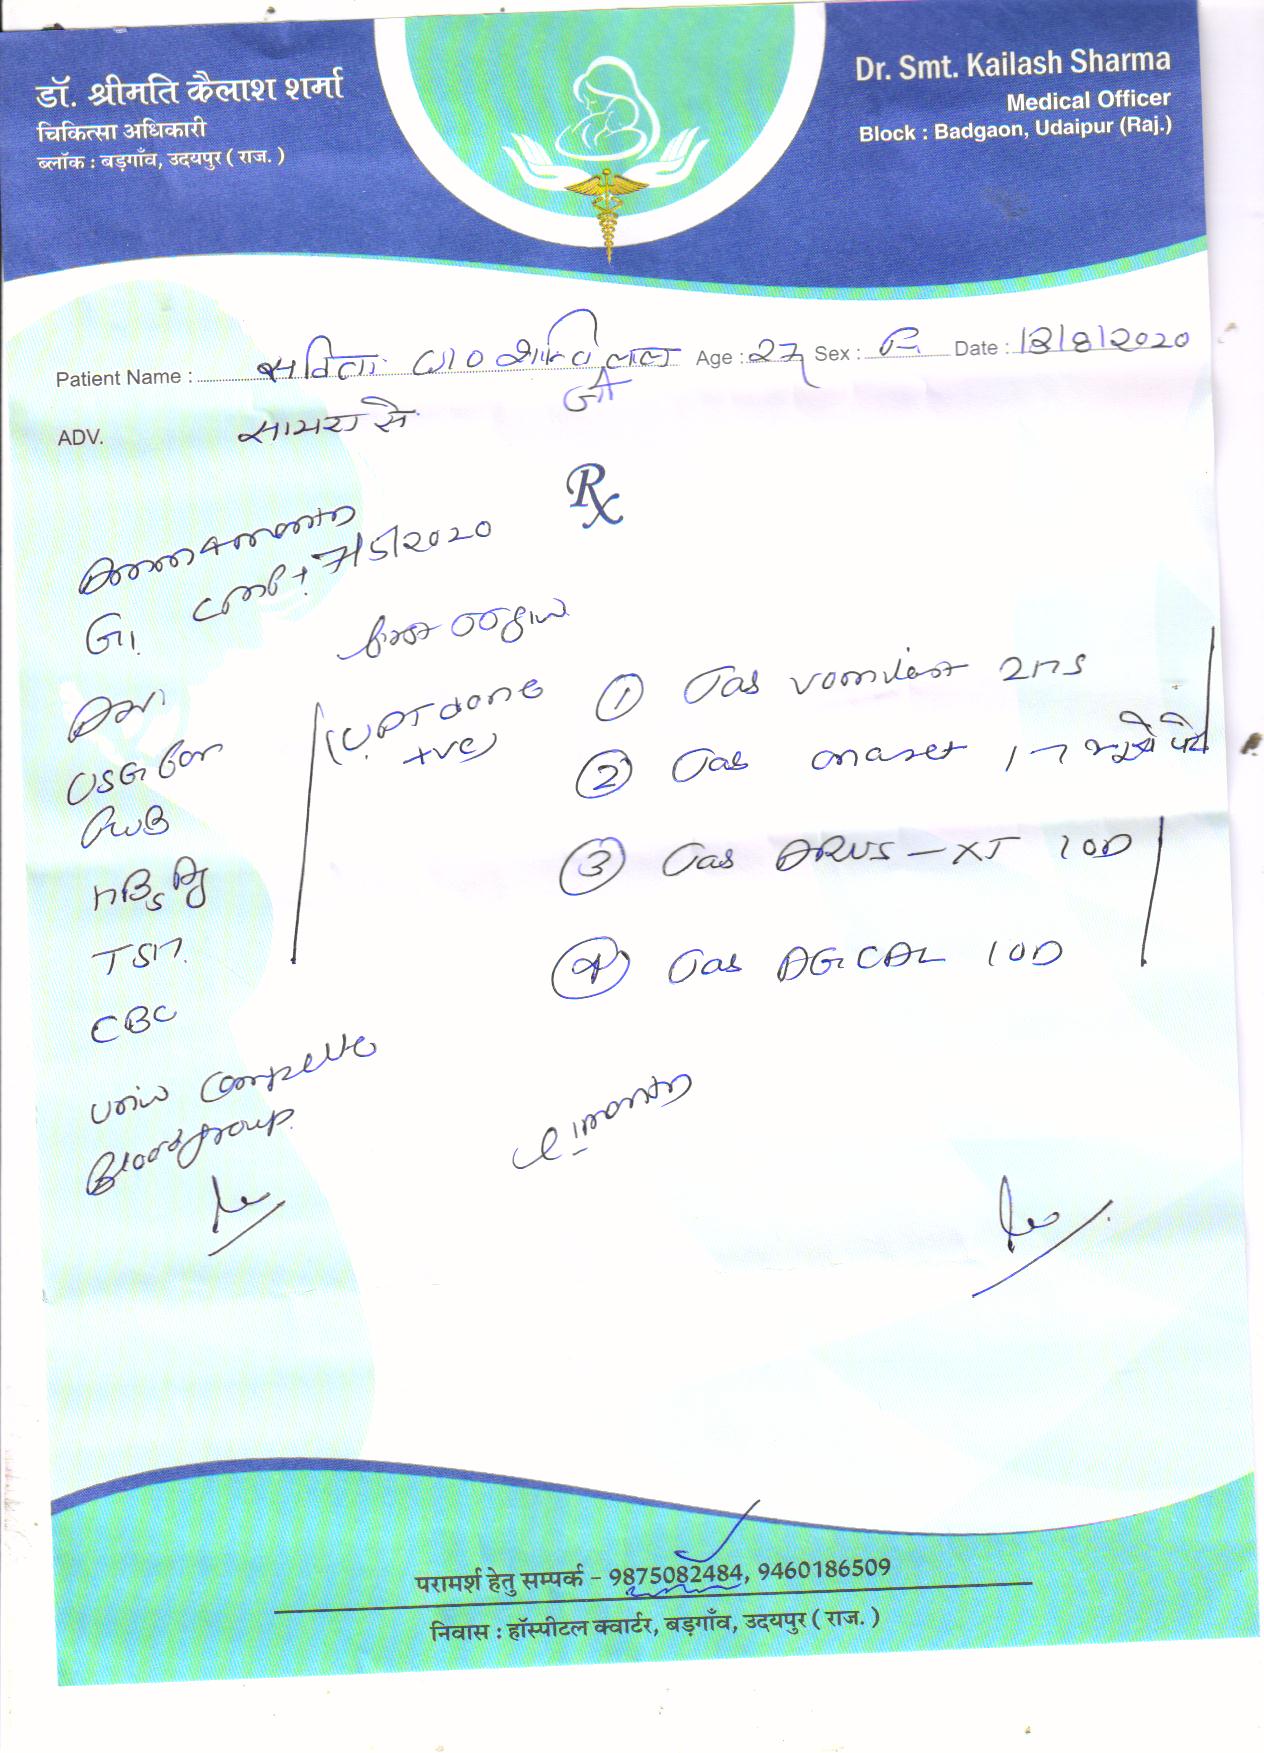 डॉ. श्रीमति कैलाश शर्मा
चिकित्सा अधिकारी
ब्लॉक : बड़गाँव, उदयपुर ( राज. )
Dr. Smt. Kailash Sharma
Medical Officer
Block : Badgaon, Udaipur (Raj.)
Patient Name : सविता W/O शान्ति लाल Age : 27 Sex : Date : 13/8/2020
ADV. सायरा से
Rx
4 month
G1 7/5/2020
USG for
FWB
HBsAg
TSH
CBC
Urine Complete
Blood group
(UPT done
+ve)
① Tab vomi 2HS
② Tab 1
③ Tab -XT 1OD
④ Tab AGICAL 1OD
1 month
परामर्श हेतु सम्पर्क – 9875082484, 9460186509
निवास : हॉस्पीटल क्वार्टर, बड़गाँव, उदयपुर ( राज. )